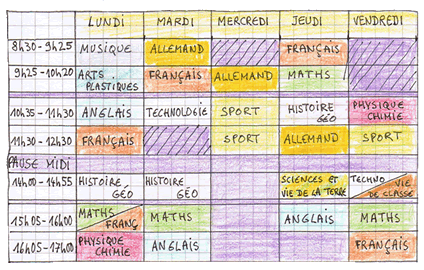 LUNDI MARDI MERCREDI JEUDI VENDREDI
8h30-9h25 MUSIQUE ALLEMAND FRANÇAIS
9h25-10h20 ARTS PLASTIQUES FRANÇAIS ALLEMAND MATHS
10h35-11h30 ANGLAIS TECHNOLOGIE SPORT HISTOIRE GÉO PHYSIQUE CHIMIE
11h30-12h30 FRANÇAIS SPORT ALLEMAND SPORT
PAUSE MIDI
14h00-14h55 HISTOIRE GÉO HISTOIRE GÉO SCIENCES ET VIE DE LA TERRE TECHNO VIE DE CLASSE
15h05-16h00 MATHS FRANÇ MATHS ANGLAIS MATHS
16h05-17h00 PHYSIQUE CHIMIE ANGLAIS FRANÇAIS